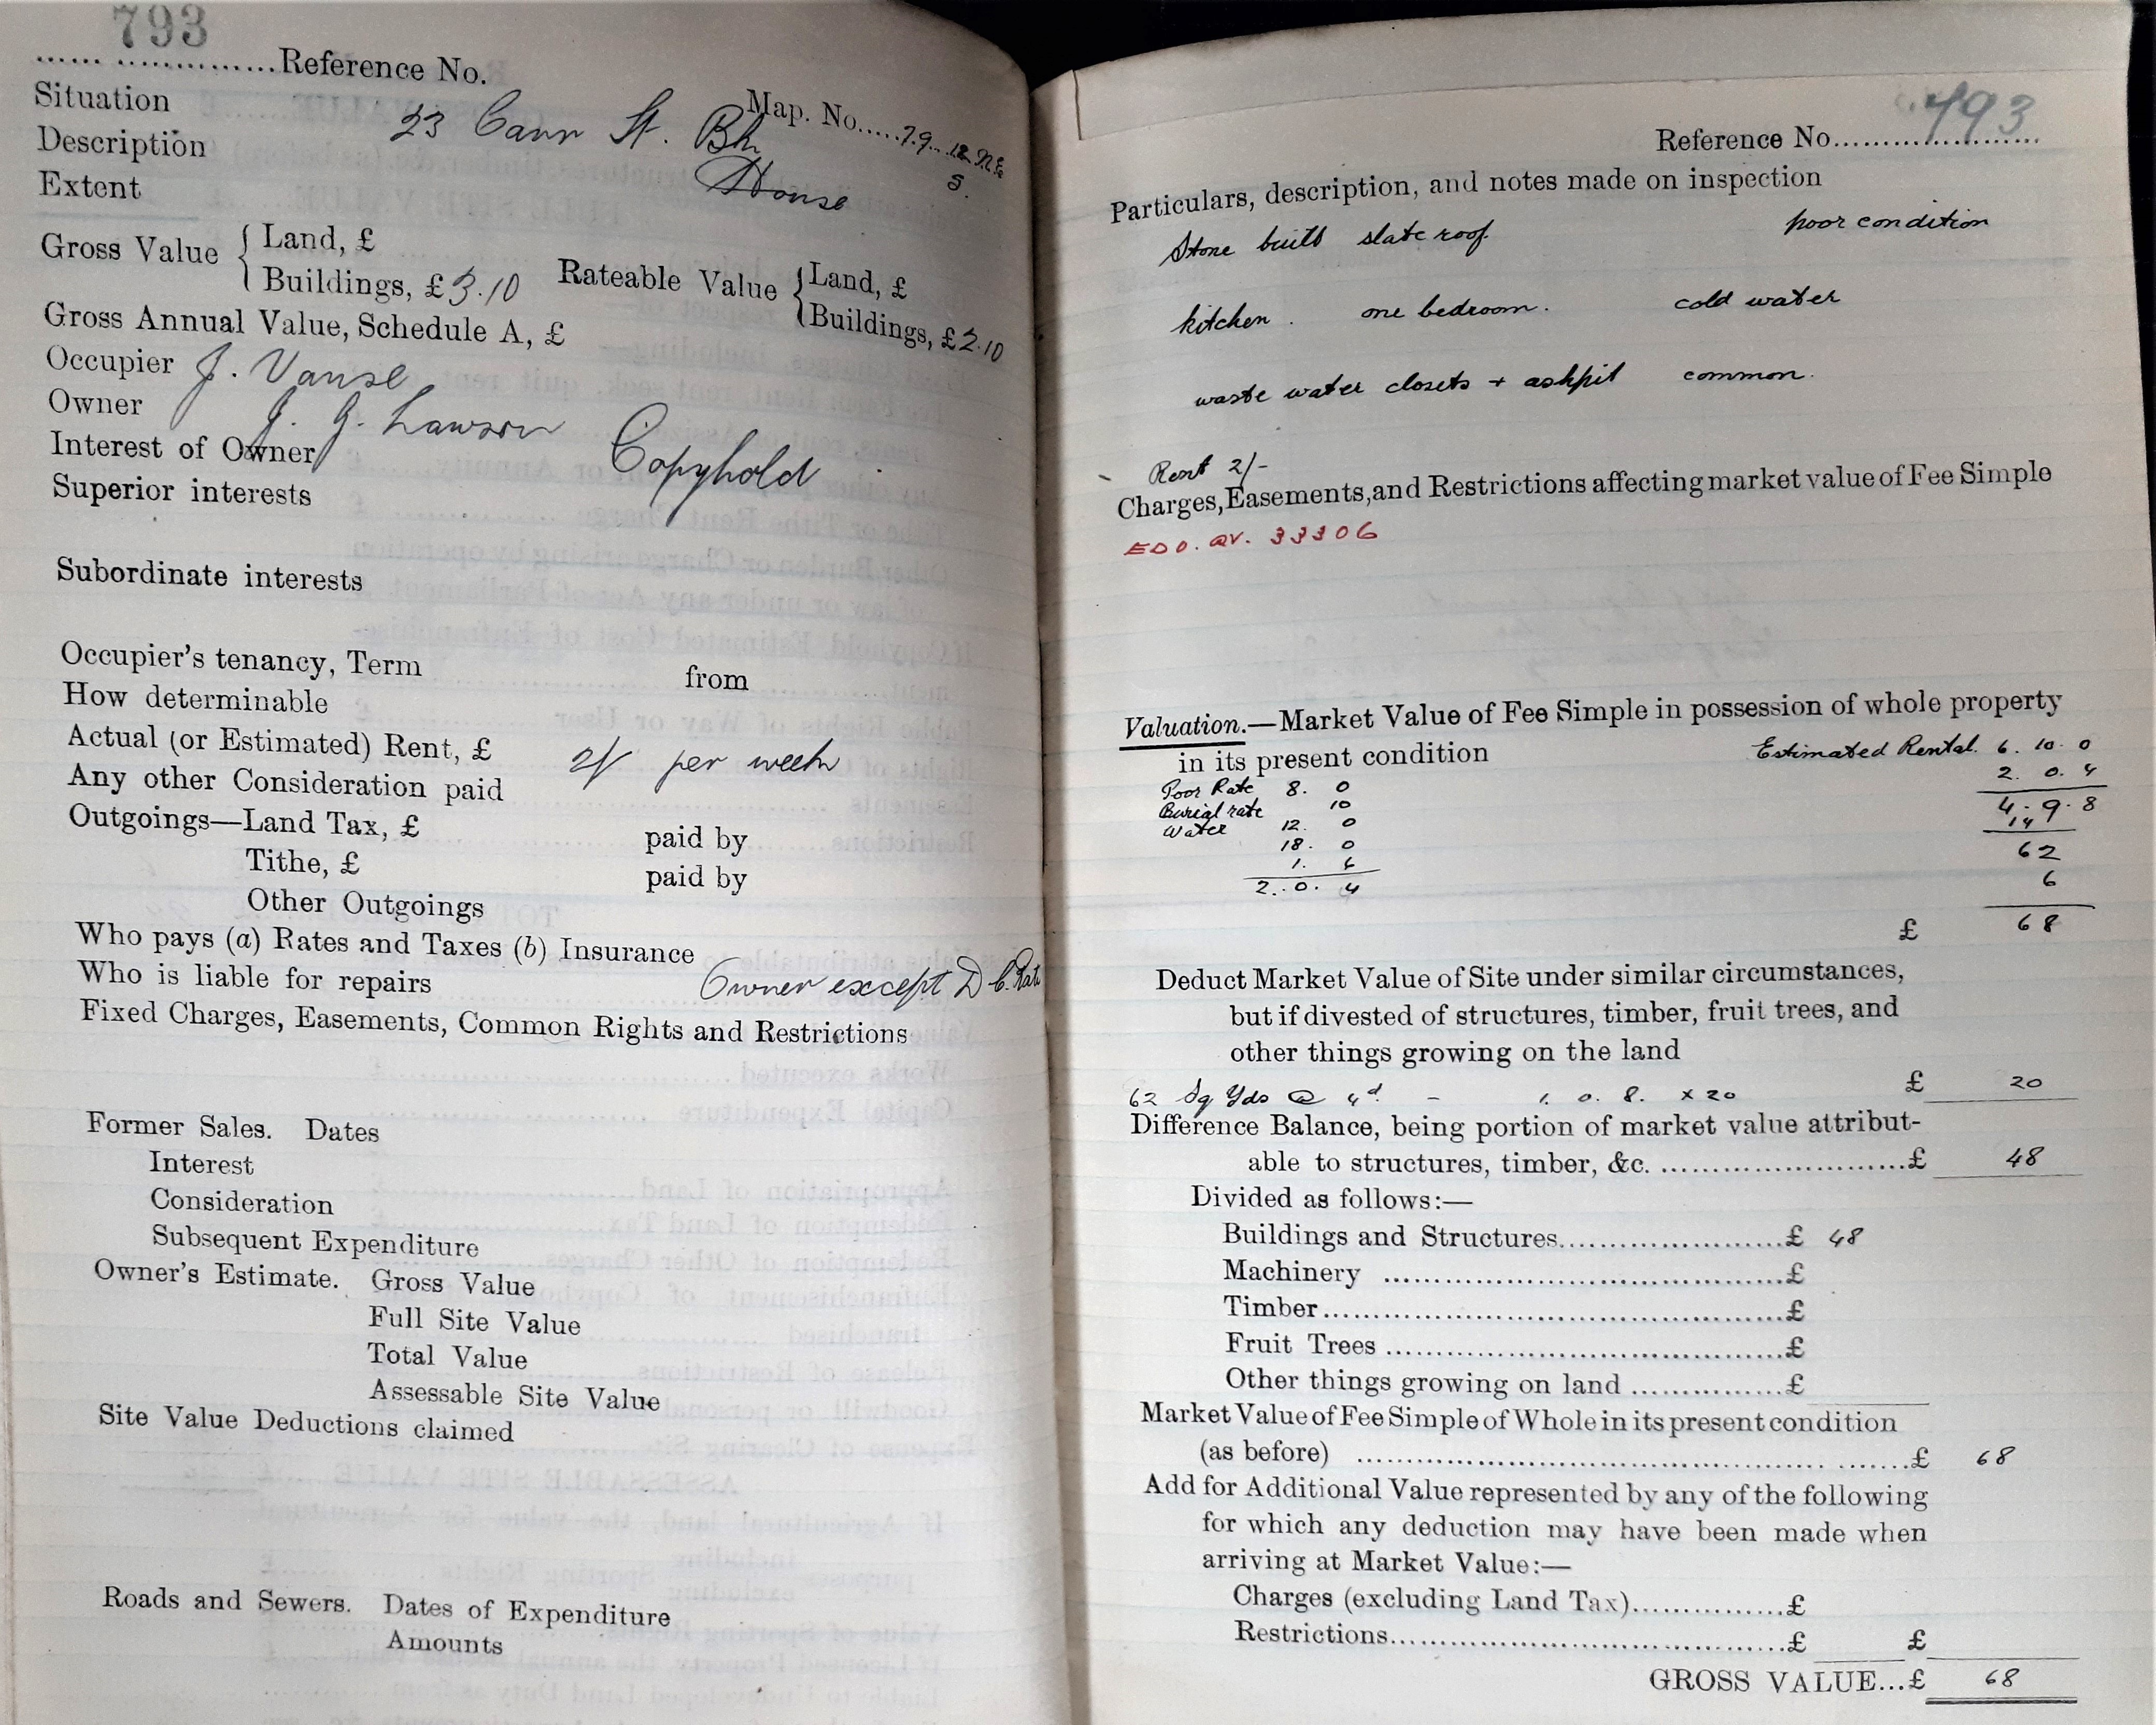 793
...... ...............Reference No.
Map. No.....79...12 N.E
5.
Situation 23 Carr St. Bh
Description House
Extent
Gross Value { Land, £
Buildings, £3.10
Rateable Value { Land, £
Buildings, £2.10
Gross Annual Value, Schedule A, £
Occupier J. Vause
Owner J. G. Lawson
Interest of Owner Copyhold
Superior interests
Subordinate interests
Occupier's tenancy, Term from
How determinable
Actual (or Estimated) Rent, £ 2/ per week
Any other Consideration paid
Outgoings—Land Tax, £ paid by
Tithe, £ paid by
Other Outgoings
Who pays (a) Rates and Taxes (b) Insurance
Who is liable for repairs Owner except D.C. Rate
Fixed Charges, Easements, Common Rights and Restrictions
Former Sales. Dates
Interest
Consideration
Subsequent Expenditure
Owner's Estimate. Gross Value
Full Site Value
Total Value
Assessable Site Value
Site Value Deductions claimed
Roads and Sewers. Dates of Expenditure
Amounts
Reference No. 793
Particulars, description, and notes made on inspection
Stone built slate roof. poor condition
kitchen. one bedroom. cold water
waste water closets + ashpit common.
Rent 2/-
Charges, Easements, and Restrictions affecting market value of Fee Simple
EDO. QV. 33306
Valuation.—Market Value of Fee Simple in possession of whole property
in its present condition Estimated Rental. 6. 10. 0
2. 0. 4
Poor Rate 8. 0
4. 9. 8
Burial rate 10
14
Water 12. 0
18. 0
62
1. 6
6
2. 0. 4
£ 68
Deduct Market Value of Site under similar circumstances,
but if divested of structures, timber, fruit trees, and
other things growing on the land
62 Sq Yds @ 4d - 1. 0. 8. x 20 £ 20
Difference Balance, being portion of market value attribut-
able to structures, timber, &c. ...........................£ 48
Divided as follows:—
Buildings and Structures........................£ 48
Machinery ........................................£
Timber..............................................£
Fruit Trees ........................................£
Other things growing on land ................£
Market Value of Fee Simple of Whole in its present condition
(as before) ...............................................£ 68
Add for Additional Value represented by any of the following
for which any deduction may have been made when
arriving at Market Value:—
Charges (excluding Land Tax)...............£
Restrictions.......................................£ £
GROSS VALUE...£ 68